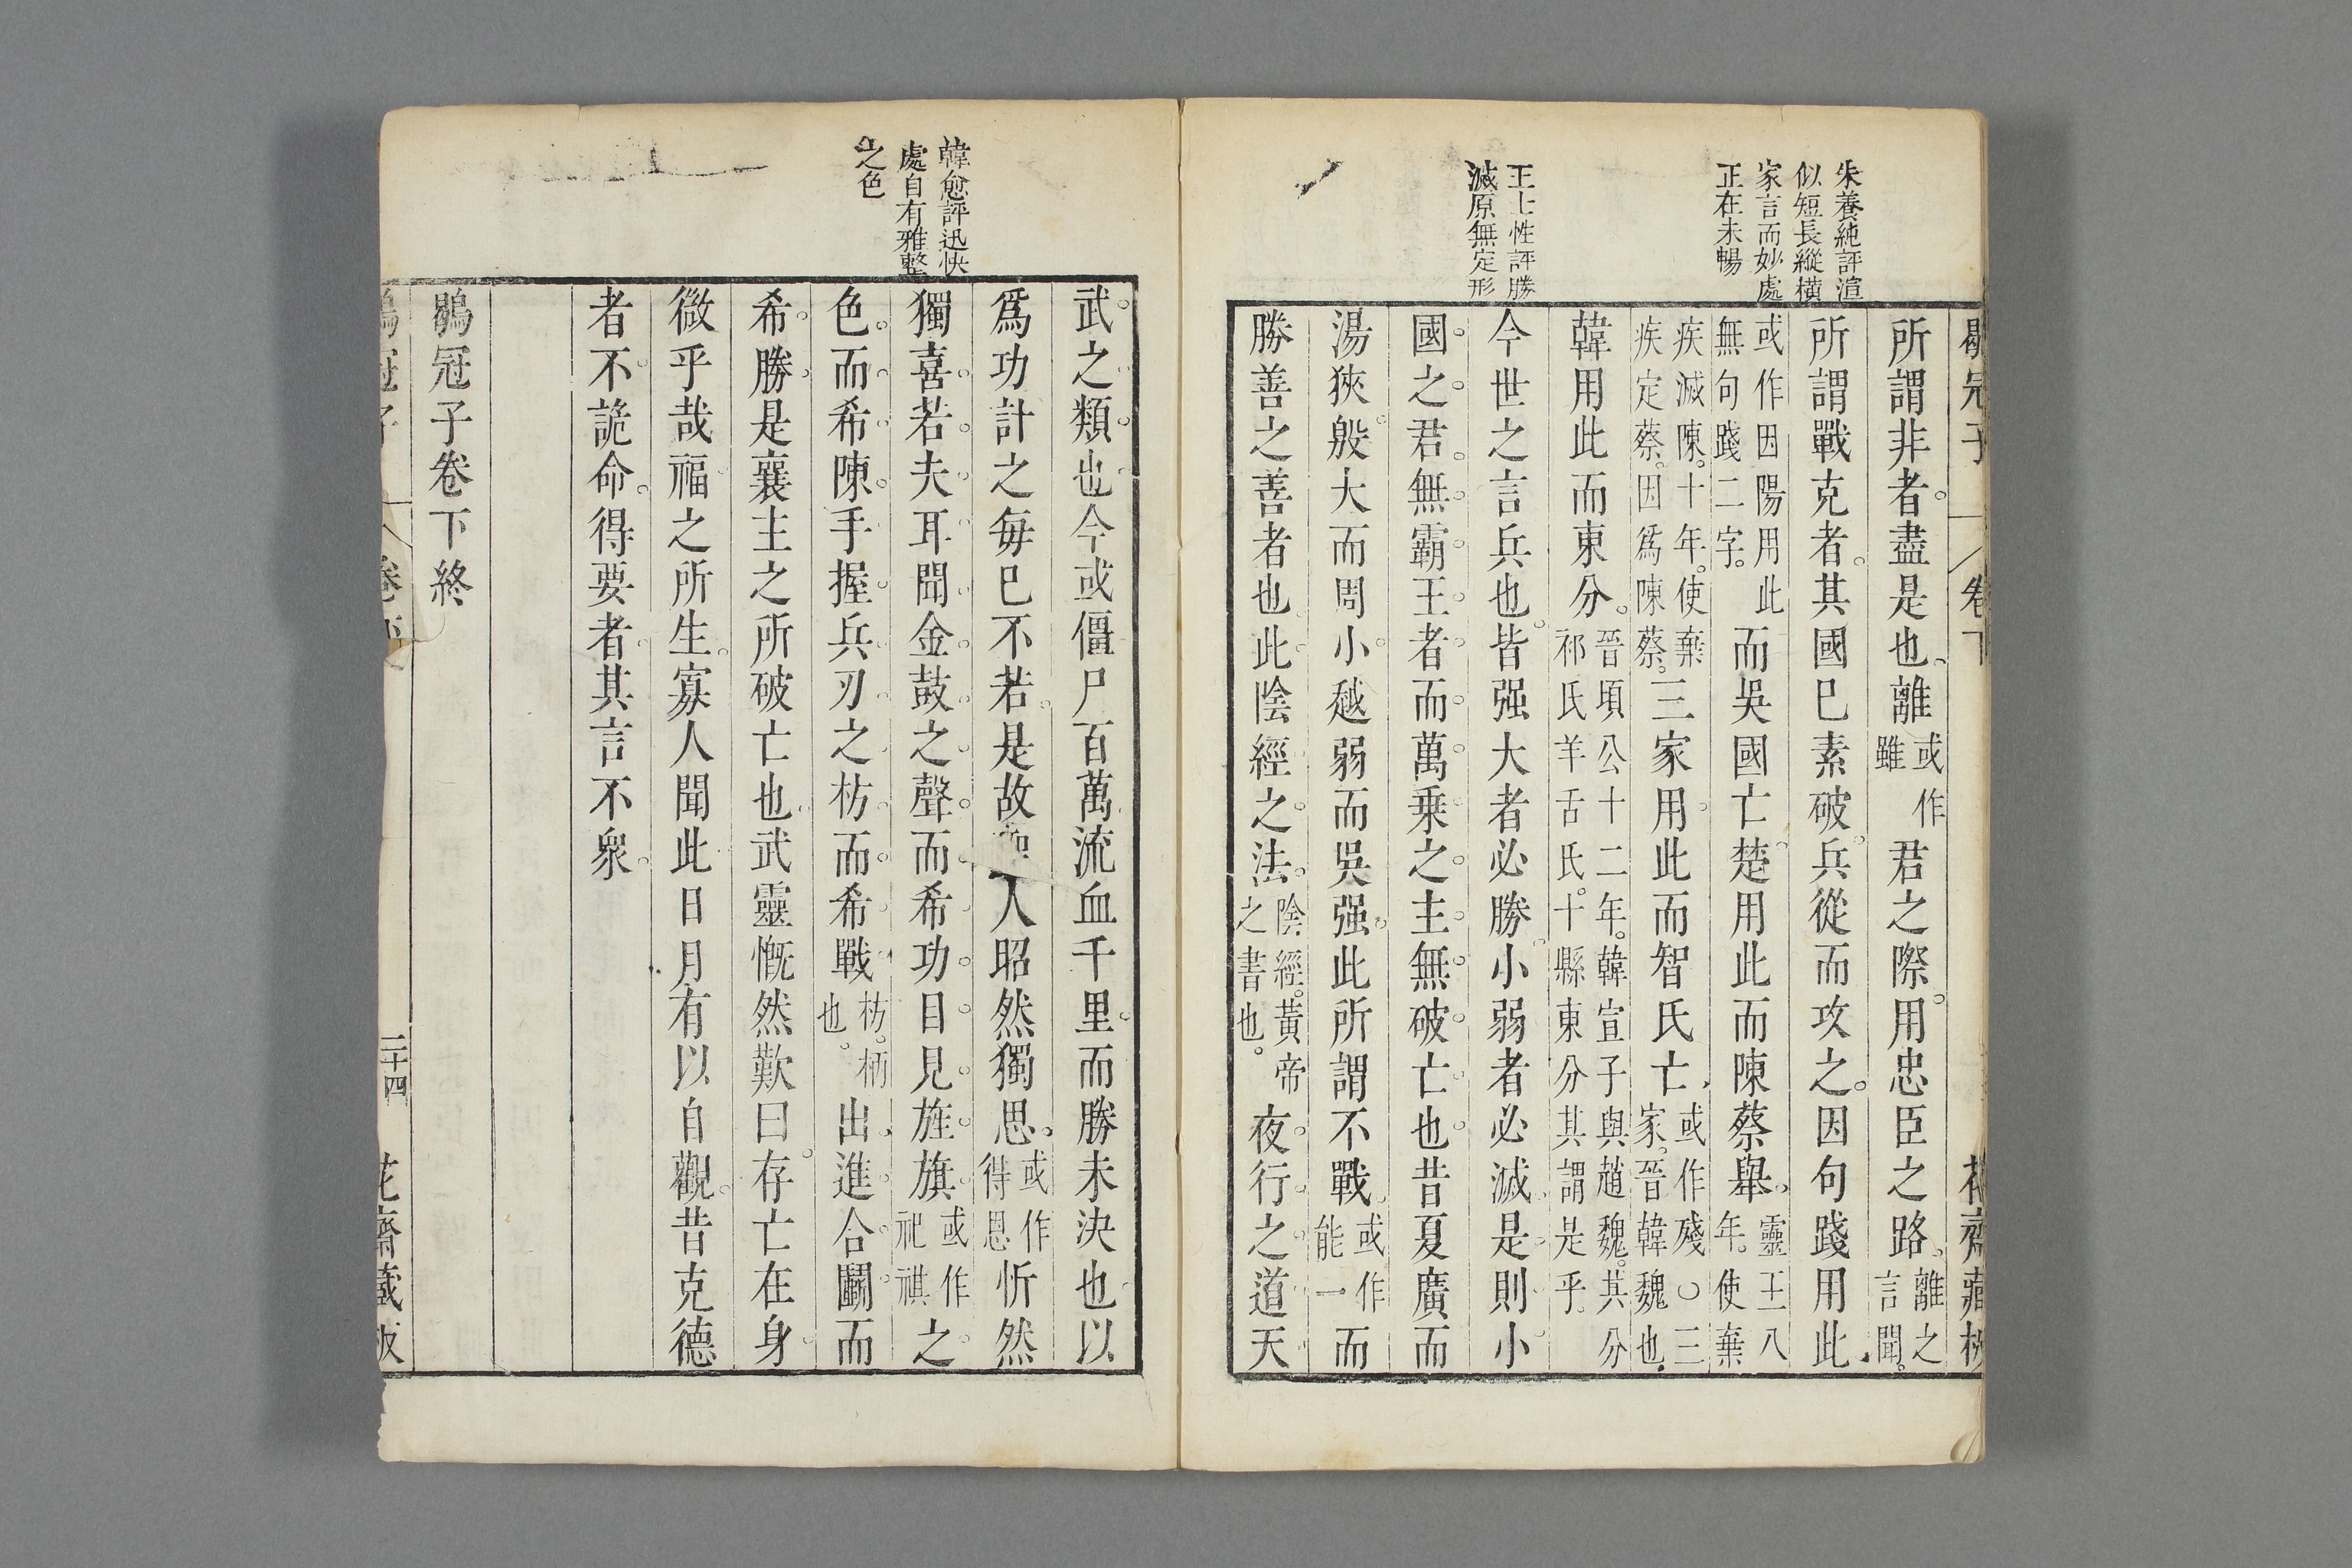 朱養純評渲
似短長縱橫
家言而妙處
正在未暢
王士性評勝
滅原無定形
鶡冠子 卷下 花齋藏板
所謂非者盡是也離或作雖君之際用忠臣之路離之言間
所謂戰克者其國已素破兵從而攻之因句踐用此
或作因陽用此無句踐二字而吳國亡楚用此而陳蔡舉靈王八年使棄
疾滅陳十年使棄疾定蔡因爲陳蔡三家用此而智氏亡或作殘〇三家晉韓魏也
韓用此而東分晉頃公十二年韓宣子與趙魏共分祁氏羊舌氏十縣東分其謂是乎
今世之言兵也皆强大者必勝小弱者必滅是則小
國之君無霸王者而萬乗之主無破亡也昔夏廣而
湯狹殷大而周小越弱而吳强此所謂不戰或作能一而
勝善之善者也此陰經之法陰經黃帝之書也夜行之道天
韓愈評迅快
處自有雅整
之色
武之類也今或僵尸百萬流血千里而勝未決也以
爲功計之每已不若是故 人昭然獨思或作得恩忻然
獨喜若夫耳聞金鼓之聲而希功目見旌旗或作祀祺之
色而希陳手握兵刃之枋而希戰枋柄也出進合鬭而
希勝是襄主之所破亡也武靈慨然歎曰存亡在身
微乎哉福之所生寡人聞此日月有以自觀昔克德
者不詭命得要者其言不衆
鶡冠子卷下終
鶡冠子 卷下 二十四 花齋藏板